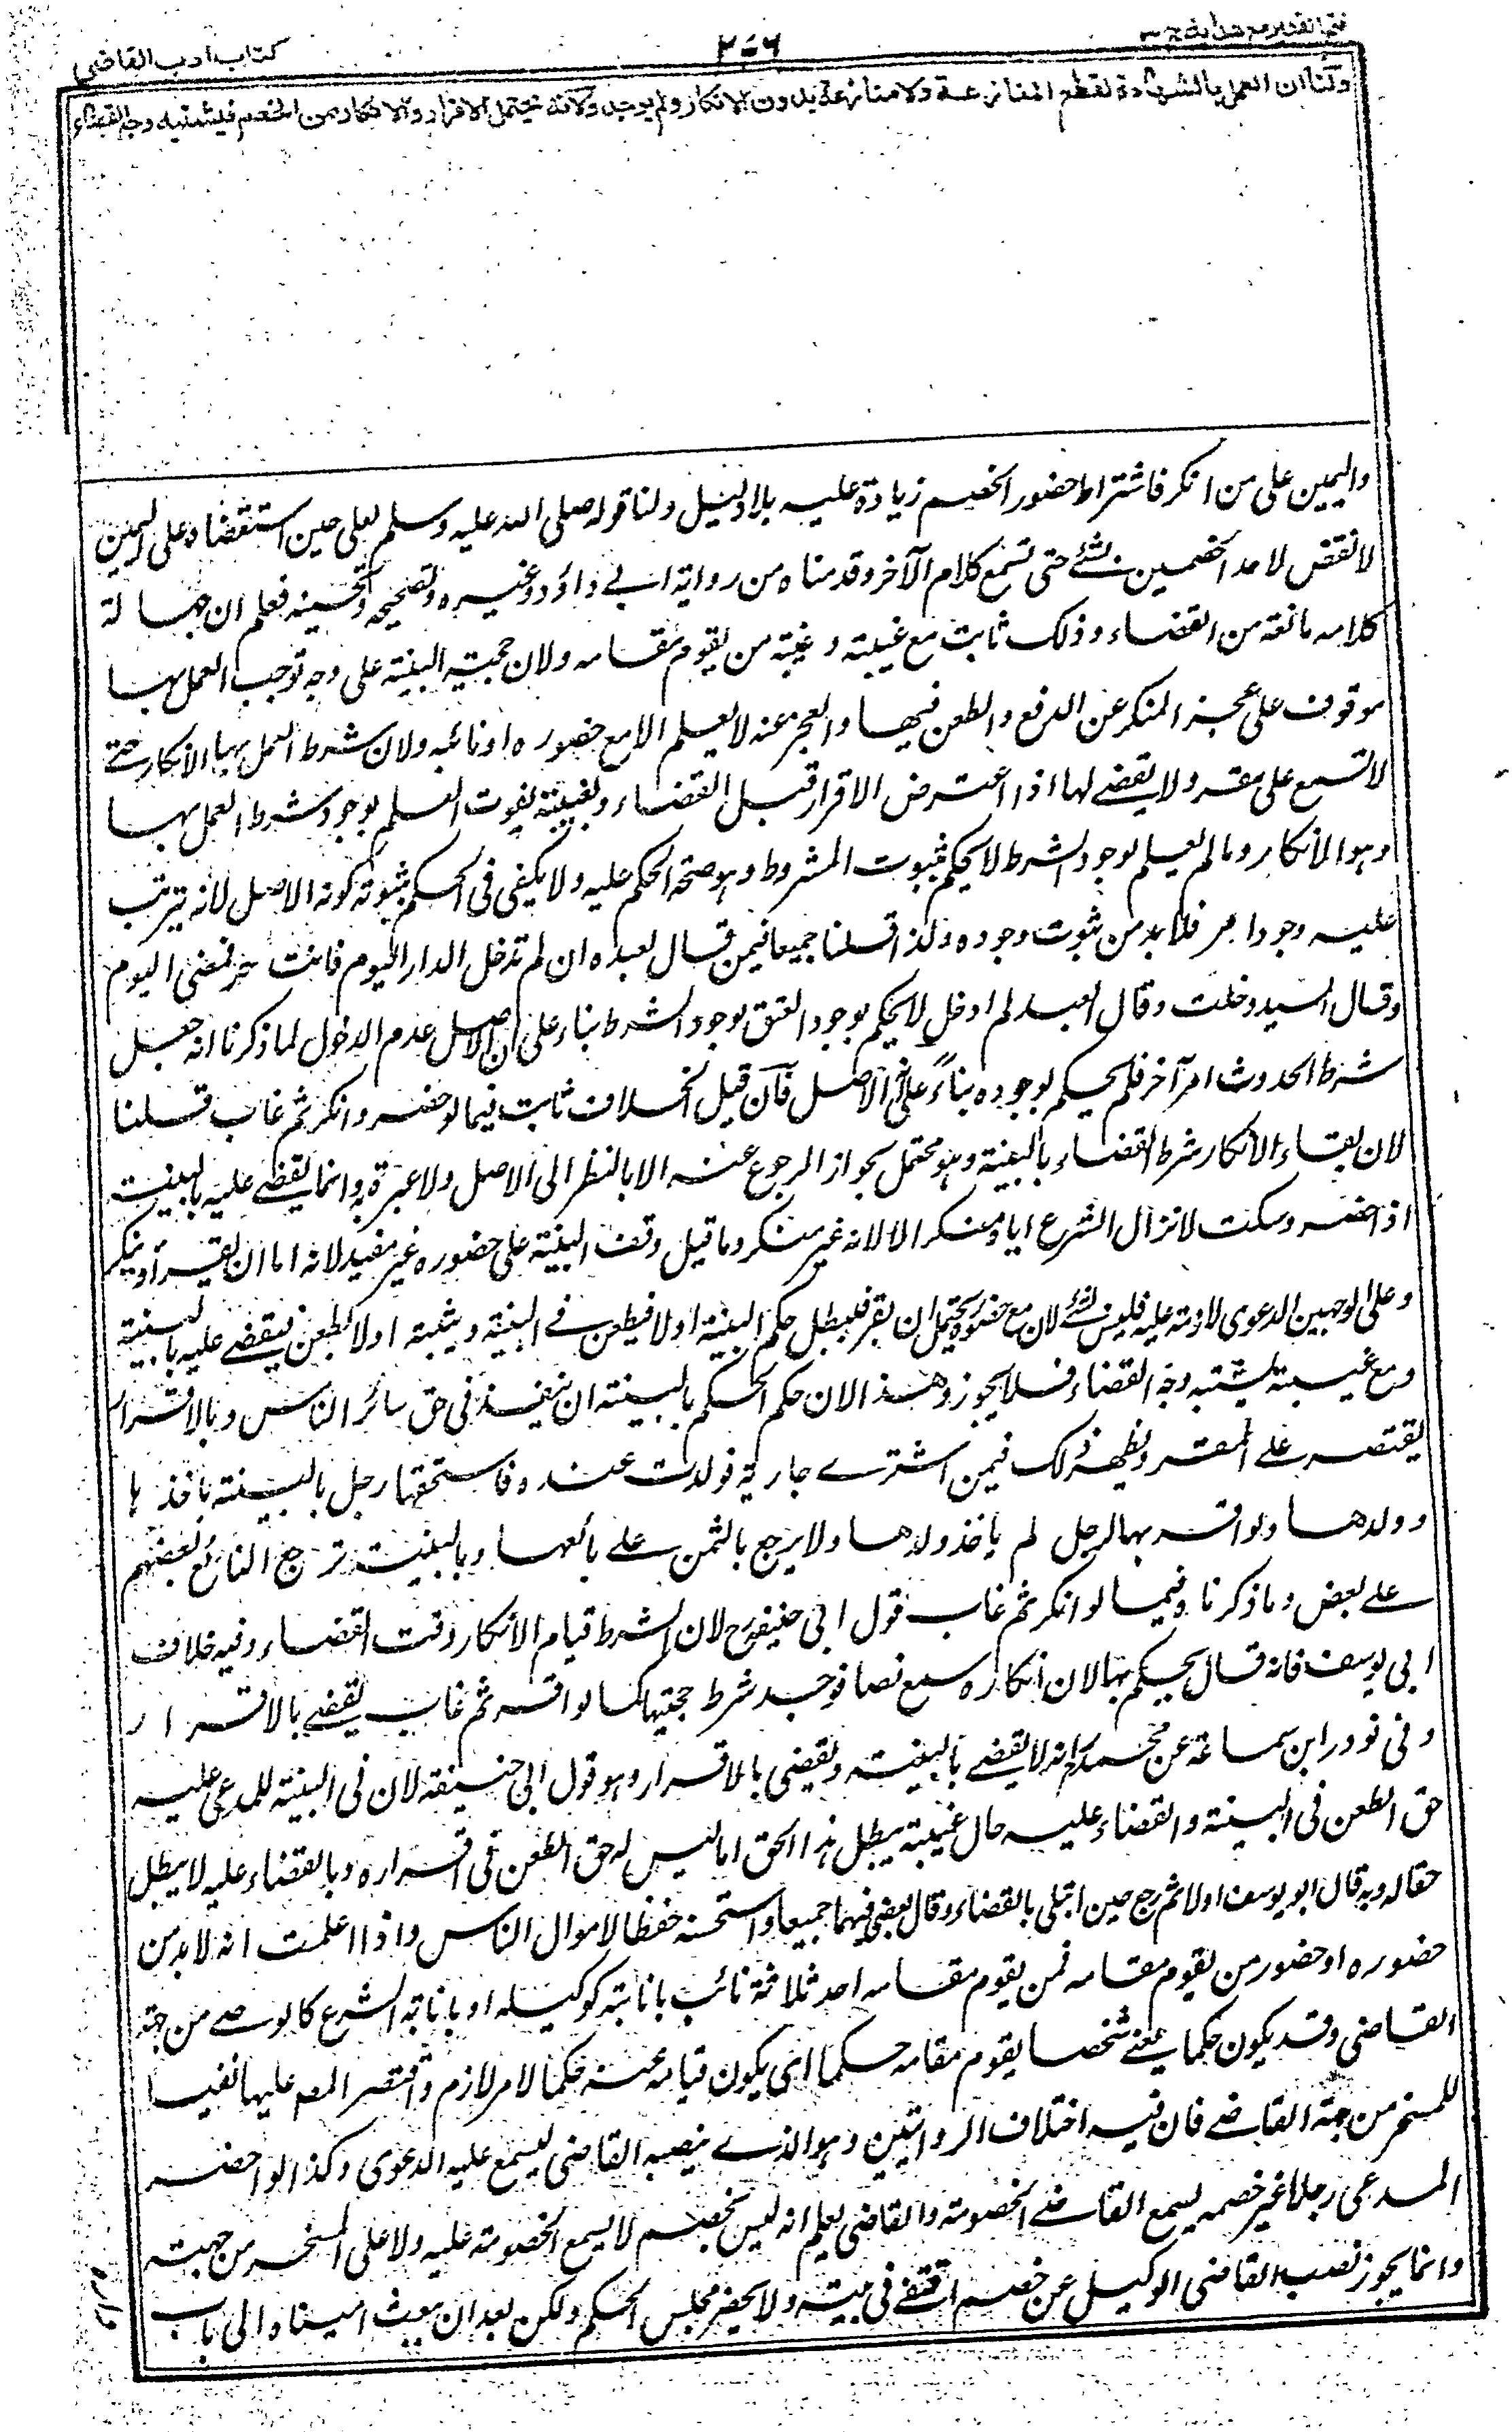 فتح القدير مع هداية ج ٣
٢٠٦
كتاب ادب القاضي
ولنا ان العمل بالشهادة لقطع المنازعة ولا منازعة بدون الانكار ولم يوجد ولانه يحتمل الاقرار والانكار من الخصم فيشتبه وجه القضاء
واليمين على من انكر فاشتراط حضور الخصم زيادة عليه بلا دليل ولنا قوله صلى الله عليه وسلم لعلى حين استقضاه على اليمن
لا تقض لاحد الخصمين بشئ حتى تسمع كلام الآخر وقدمناه من رواية ابي داؤد وغيره وتصحيحه وتحسينه فعلم ان جهالة
كلامه مانعة من القضاء وذلك ثابت مع غيبته و غيبة من يقوم مقامه ولان حجية البينة على وجه توجب العمل بها
موقوف على عجز المنكر عن الدفع والطعن فيها والعجز عنه لا يعلم الا مع حضوره او نائبه ولان شرط العمل بها الانكار حتى
لا تسمع على مقر ولا يقضى لها اذا اعترض الاقرار قبل القضاء وبغيبته يفوت العلم بوجود شرط العمل بها
وهو الانكار وما لم يعلم بوجود الشرط لا يحكم بثبوت المشروط وهو صحة الحكم عليه ولا يكفى فى الحكم بثبوته كونه الاصل لانه يترتب
عليه وجود امر فلا بد من ثبوت وجوده ولذا قلنا جميعا فيمن قال لعبده ان لم تدخل الدار اليوم فانت حر فمضى اليوم
وقال السيد دخلت وقال العبد لم ادخل لا يحكم بوجود العتق بوجود الشرط بناء على ان الاصل عدم الدخول لما ذكرنا انه جعل
شرط الحدوث امر آخر فلم يحكم بوجوده بناءً على انه الاصل فآن قيل الخلاف ثابت فيما لو حضر وانكر ثم غاب قلنا
لان بقاء الانكار شرط القضاء بالبينة وهو محتمل بجواز الرجوع عنه الا بالنظر الى الاصل ولا عبرة به وانما يقضى عليه بالبينة
اذا حضر وسكت لانزال الشرع اياه منكرا لا لانه غير منكر وما قيل وقف البينة على حضوره غير مفيد لانه اما ان يقر أو ينكر
وعلى الوجهين الدعوى لازمة عليه فليس بشئ لان مع حضوره يحتمل ان يقر فيبطل حكم البينة اولا فيطعن فى البينة ويثبته اولا يطعن فيقضى عليه بالبينة
ومع غيبته يشتبه وجه القضاء فلا يجوز وهذا لان حكم الحكم بالبينة ان ينفذ فى حق سائر الناس وبالاقرار
يقتصر على المقر ويظهر ذلك فيمن اشترى جارية فولدت عنده فاستحقها رجل بالبينة ياخذها
وولدها ولو اقر بها لرجل لم ياخذ ولدها ولا يرجع بالثمن على بائعها وبالبينة ترجع الباعة بعضهم
على بعض وما ذكرنا فيما لو انكر ثم غاب قول ابى حنيفةرح لان الشرط قيام الانكار وقت القضاء وفيه خلاف
ابى يوسف فانه قال يحكم بها لان انكاره سمع نصا فوجد شرط حجيتها كما لو اقر ثم غاب يقضى بالاقرار
وفى نوادر ابن سماعة عن محمدرح انه لا يقضى بالبينة ويقضى بالاقرار وهو قول ابى حنيفة لان فى البينة للمدعى عليه
حق الطعن فى البينة والقضاء عليه حال غيبته يبطل هذا الحق اما ليس له حق الطعن فى اقراره وبالقضاء عليه لا يبطل
حقا له وبه قال ابو يوسف اولا ثم رجع حين ابتلى بالقضاء وقال يقضى فيهما جميعا واستحسنه حفظا لاموال الناس واذا علمت انه لا بد من
حضوره او حضور من يقوم مقامه فمن يقوم مقامه احد ثلاثة نائب بانابته كوكيله او بانابة الشرع كالوصى من جهة
القاضى وقد يكون حكما يعنى شخصا يقوم مقامه حكما اى يكون قيامه عنه حكما لامر لازم واقتصر المصم عليها نفيا
للمسخر من جهة القاضى فان فيه اختلاف الروايتين وهو الذى ينصبه القاضى ليسمع عليه الدعوى وكذا لو احضر
المدعى رجلا غير خصمه ليسمع القاضى الخصومة والقاضى يعلم انه ليس بخصم لا يسمع الخصومة عليه ولا على المسخر من جهته
وانما يجوز نصب القاضى الوكيل عن خصم اختفى فى بيته ولا يحضر مجلس الحكم ولكن بعد ان يبعث امينا الى باب
داره